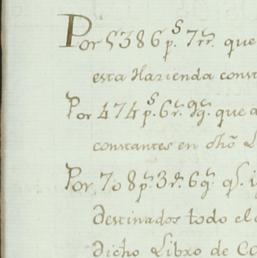 Por 5386 p.s 7 rr. que
esta Hazienda const
Por 474 p.s 6 r. 9 g. que a
constantes en dhõ L
Por 708 p.s 3 r. 6 g. q.l i
destinados todo el
dicho Libro de CC